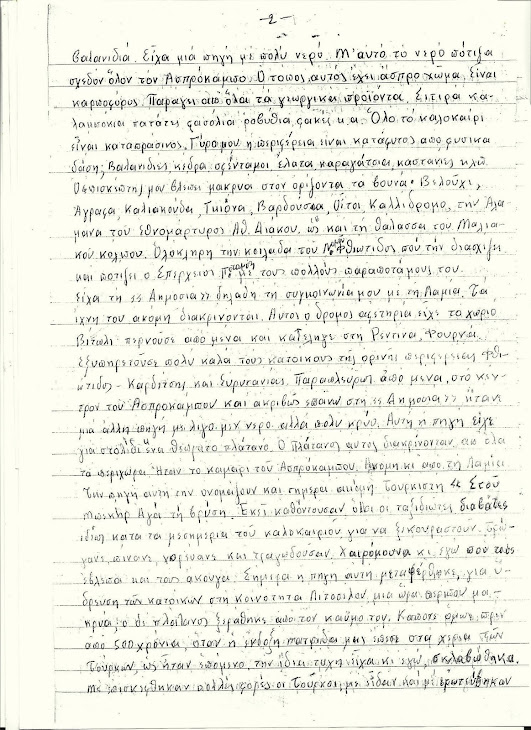 -2-
Βαλανιδιά. Είχα μιά πηγή με πολύ νερό. Μ'αυτό το νερό πότιζα
σχεδόν όλον τον Ασπρόκαμπο. Ο τοπος αυτός έχει άσπρο χώμα, είναι
καρποφόρος. Παραγει απ' όλαι τα γεωργικαι προϊόντα. Σιτιρά κα-
λαμπόκια πατάτες φασόλια ροβύθια φακές κ.α. Όλο το καλοκαίρι
είναι καταπράσινος. Γύρομου η περιφέρεια είναι κατάφυτος από φυσικα
δάση, Βαλανιδιές κέδρα σφένταμοι έλατα καραγάτσια, καστανιές κ.λ.π.
Ο επισκέπτης μου βλέπει μακρυα στον ορίζοντα τα βουνά: Βελούχι,
Άγραφα, Καλιακούδα, Γκιόνα, Βαρδούσια, Οίτοι Καλλίδρομο, την Αλα-
μάνα του εθνομάρτυρος Αθ. Διακου, ως και τη θαλασσα του Μαλια-
κού κόλπου. Ολοκληρη την κοιλαδα του Νομού Φθιώτιδος που την διασχίζει
και ποτίζει ο Σπερχειος ποταμός με τους πολλούς παραποτάμους του.
Είχα τη << Δημοσια >> δηλαδη τη συγκοινωνία μου με τη Λαμία. Τα
ίχνη του ακομη διακρίνονται. Αυτος ο δρομος αφετηρία είχε το χωριο
Βίτωλι περνούσε από μένα και κατέληγε στη Ρεντίνα, Φουρνά.
Εξυπηρετούσε πολυ καλα τους κατοικους της ορινης περιφερειας Φθι-
ώτιδος - Καρδίτσης και Ευρυτανίας. Παραπλεύρως απο μενα, στο κεν-
τρον του Ασπροκαμπου και ακριβως επάνω στη << Δημοσια >> ήταν
μια άλλη πηγη με λιγο μεν νερο αλλά πολυ κρύο. Αυτη η πηγη είχε
για στολίδι ένα θεόρατο πλάτανο. Ο Πλάτανος αυτος διακρίνονταν απ' όλα
τα περιχωρα. Ήταν το καμαρι του Ασπροκαμπου. Ακομη κι απο τη Λαμία
Την πηγη αυτη την ονομαζουν και σημερα ακομη Τουρκιστη << Στου
Αγά τη βρύση. Εκεί καθόντουσαν όλοι οι ταξιδιώτες διαβάτες
ιδίως κατα τα μεσημερια του καλοκαιριου για να ξεκουραστουν. Τρώ-
γανε, πίνανε, χορεύανε και τραγωδουσαν. Χαιρόμουνα κι εγω που τους
έβλεπα και τους ακουγα. Σήμερα η πηγη αυτη μεταφέρθηκε, για ύ-
δρευση των κατοικων στη κοινοτητα Λιτοσελου, μια ωρα περιπου μα-
κρυα, ο δε πλατανος ξεράθηκε απο τον καϋμο του. Καποτε όμως, πριν
απο 500 χρόνια όταν η ένδοξη πατρίδα μας επεσε στα χερια των
Τούρκων, ως ήταν επομενο, την ίδια τυχη είχα κι εγώ, σκλαβώθηκα.
Με επισκεφθηκαν πολλές φορές οι Τουρκοι, με είδαν και με ερωτεύθηκαν